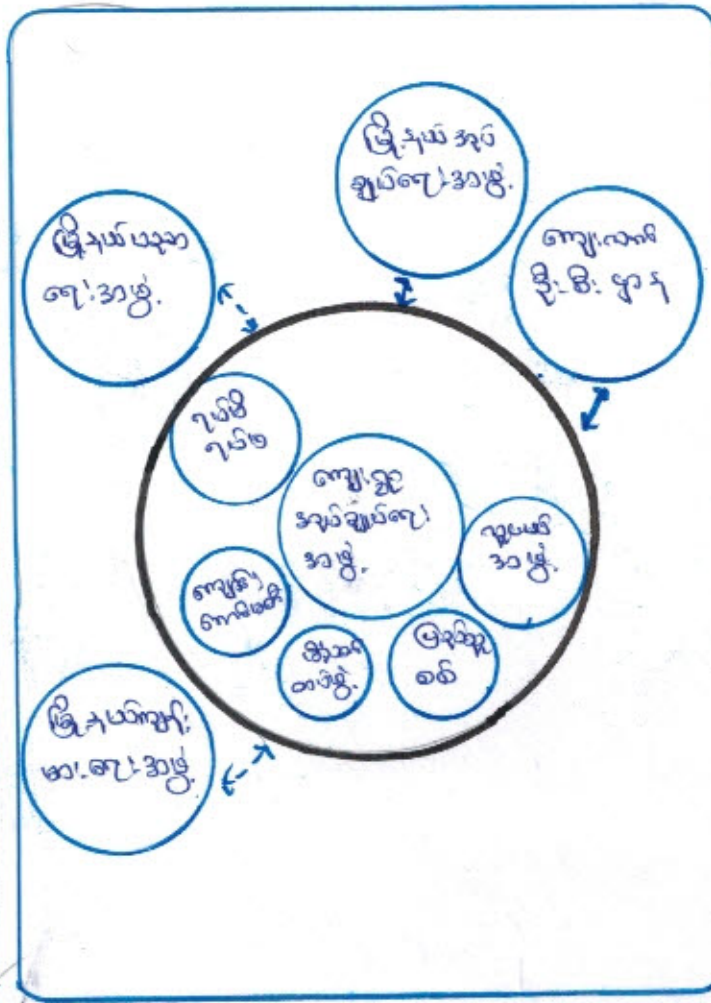 မြို့နယ်အုပ်
ချုပ်ရေးအဖွဲ့
ကျေးလက်
ဦးစီးဌာန
မြို့နယ်ပညာ
ရေးအဖွဲ့
ရပ်မိ
ရပ်ဖ
ကျေးရွာ
အုပ်ချုပ်ရေး
အဖွဲ့
လူငယ်
အဖွဲ့
ကျောင်း
ကော်မတီ
မီးသတ်
တပ်ဖွဲ့
ပြည်သူ့
စစ်
မြို့နယ်ကျန်း
မာရေးအဖွဲ့